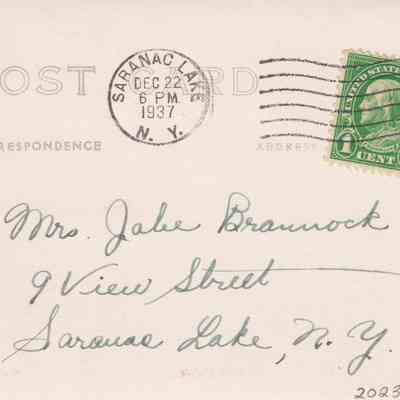 POST CARD
SARANAC LAKE
DEC 22
6 PM
1937
N. Y.
UNITED STATES
1 CENT
RESPONDENCE
ADDRESS
Mrs. Jabe Brannock
9 View Street
Saranac Lake, N. Y.
2023